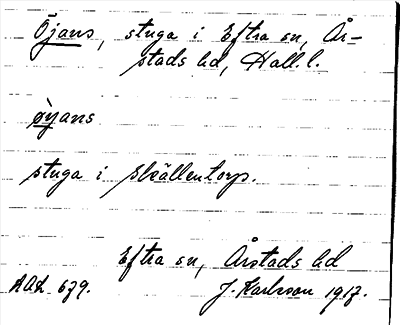 Öjans, stuga i Eftra sn, År-
stads hd, Hall. l.
öyans
stuga i Skällentorp.
Eftra sn, Årstads hd
AAL 679. J. Karlsson 1917.